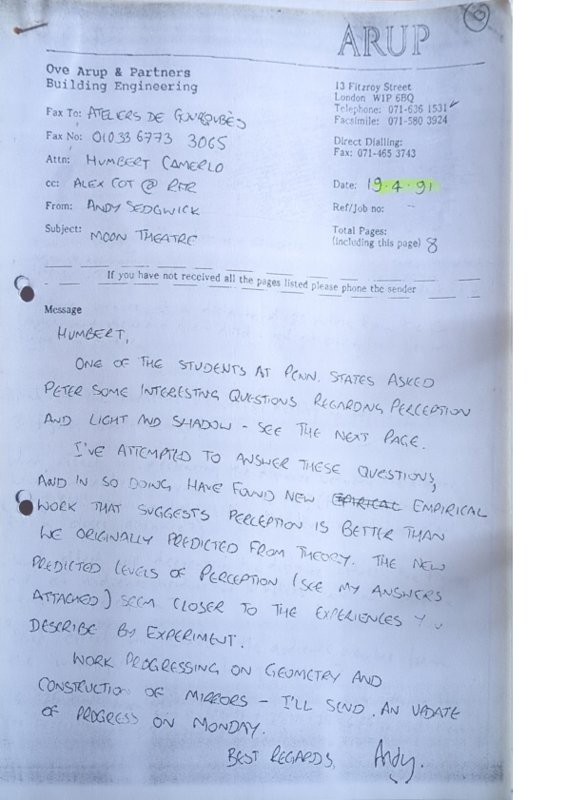 3
ARUP
Ove Arup & Partners
Building Engineering
13 Fitzroy Street
London W1P 6BQ
Telephone: 071-636 1531
Facsimile: 071-580 3924
Fax To: ATELIERS DE GOURGUBÈS
Fax No: 01033 6773 3065
Direct Dialling:
Fax: 071-465 3743
Attn: HUMBERT CAMERLO
cc: ALEX COT @ RFR
Date: 19.4.91
From: ANDY SEDGWICK
Ref/Job no: -
Subject: MOON THEATRE
Total Pages:
(including this page) 8
If you have not received all the pages listed please phone the sender
Message
HUMBERT,
ONE OF THE STUDENTS AT PENN. STATES ASKED
PETER SOME INTERESTING QUESTIONS REGARDING PERCEPTION
AND LIGHT AND SHADOW - SEE THE NEXT PAGE.
I'VE ATTEMPTED TO ANSWER THESE QUESTIONS,
AND IN SO DOING HAVE FOUND NEW EMPIRICAL
WORK THAT SUGGESTS PERCEPTION IS BETTER THAN
WE ORIGINALLY PREDICTED FROM THEORY. THE NEW
PREDICTED LEVELS OF PERCEPTION (SEE MY ANSWERS
ATTACHED) SEEM CLOSER TO THE EXPERIENCES
DESCRIBE BY EXPERIMENT.
WORK PROGRESSING ON GEOMETRY AND
CONSTRUCTION OF MIRRORS - I'LL SEND AN UPDATE
OF PROGRESS ON MONDAY.
BEST REGARDS, Andy.